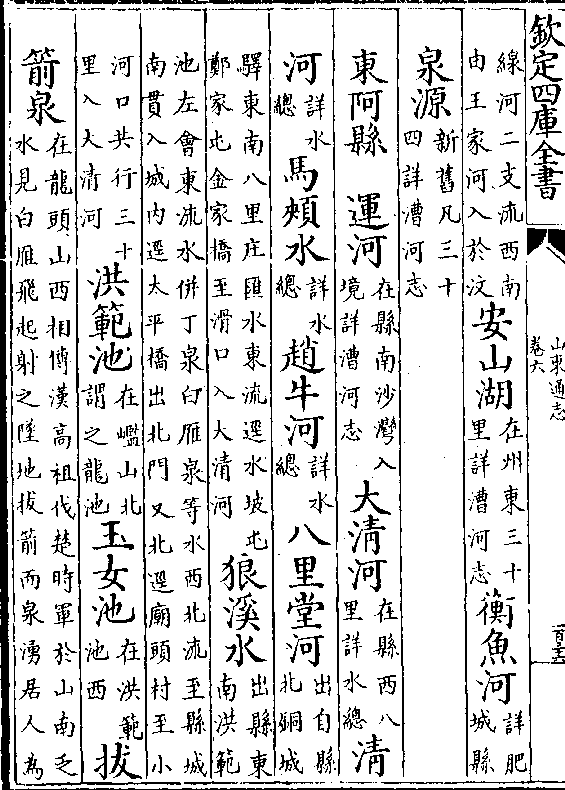 欽定四庫全書
山東通志
卷六
線河二支流西南
由王家河入於汶
安山湖
在州東三十
里詳漕河志
衡魚河
詳肥
城縣
泉源
新舊凡三十
四詳漕河志
東阿縣 運河
在縣南沙灣入
境詳漕河志
大清河
在縣西八
里詳水總
清
河
詳水
總
馬頰水
詳水
總
趙牛河
詳水
總
八里堂河
出自縣
北銅城
驛東南八里庄匯水東流逕水坡屯
鄭家屯金家橋至滑口入大清河
狼溪水
出縣東
南洪範
池左會東流水併丁泉白雁泉等水西北流至縣城
南貫入城內逕太平橋出北門又北逕廟頭村至小
河口共行三十
里入大清河
洪範池
在山北
謂之龍池
玉女池
在洪範
池西
拔
箭泉
在龍頭山西相傳漢高祖伐楚時軍於山南乏
水見白雁飛起射之墜地拔箭而泉湧居人為